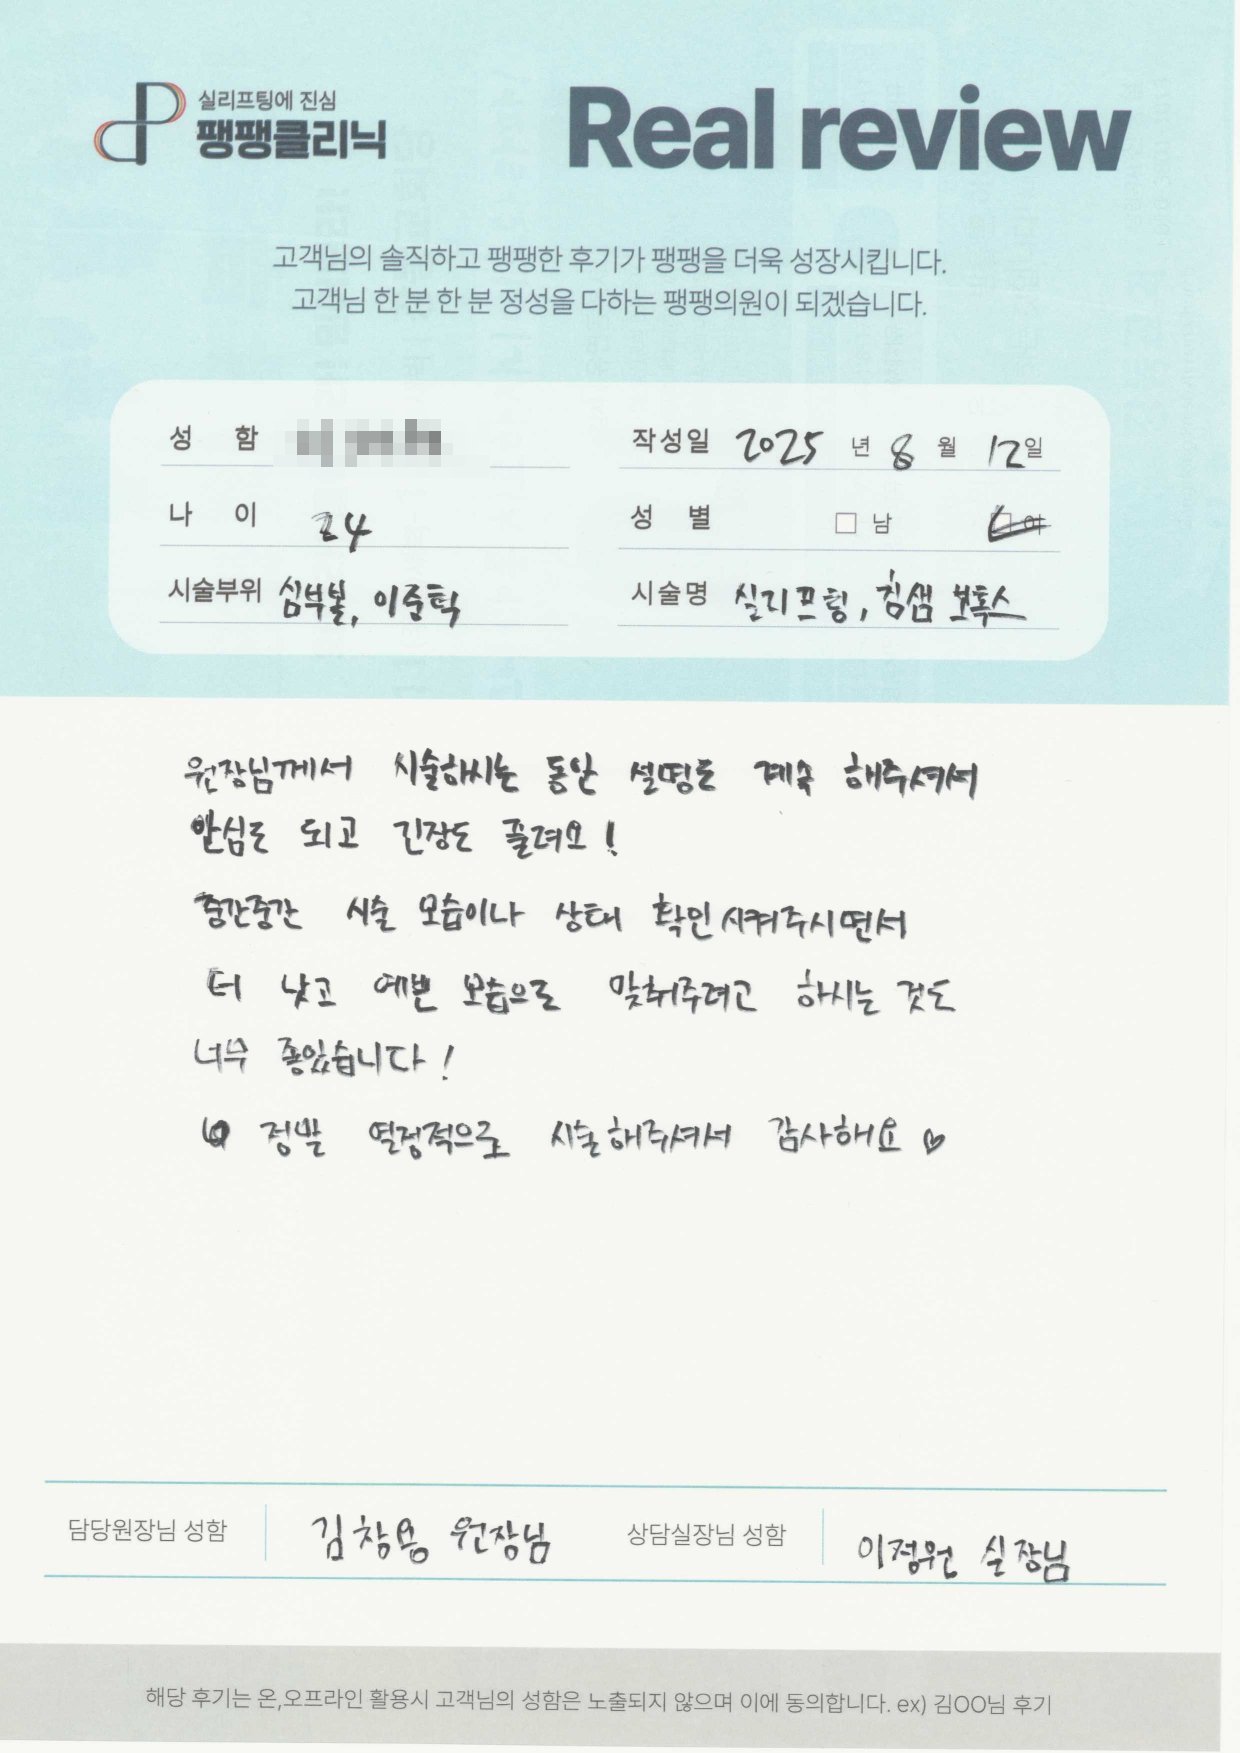 실리프팅에 진심
팽팽클리닉
Real review
고객님의 솔직하고 팽팽한 후기가 팽팽을 더욱 성장시킵니다.
고객님 한 분 한 분 정성을 다하는 팽팽의원이 되겠습니다.
성 함 작성일 2025 년 8 월 12일
나 이 24 성 별 남 여
시술부위 심부볼, 이중턱 시술명 실리프팅, 침샘 보톡스
원장님께서 시술하시는 동안 설명도 계속 해주셔서
안심도 되고 긴장도 풀려요!
중간중간 시술 모습이나 상태 확인시켜주시면서
더 낫고 예쁜 모습으로 맞춰주려고 하시는 것도
너무 좋았습니다!
정말 열정적으로 시술해주셔서 감사해요♡
담당원장님 성함 김창용 원장님 상담실장님 성함 이정원 실장님
해당 후기는 온,오프라인 활용시 고객님의 성함은 노출되지 않으며 이에 동의합니다. ex) 김OO님 후기